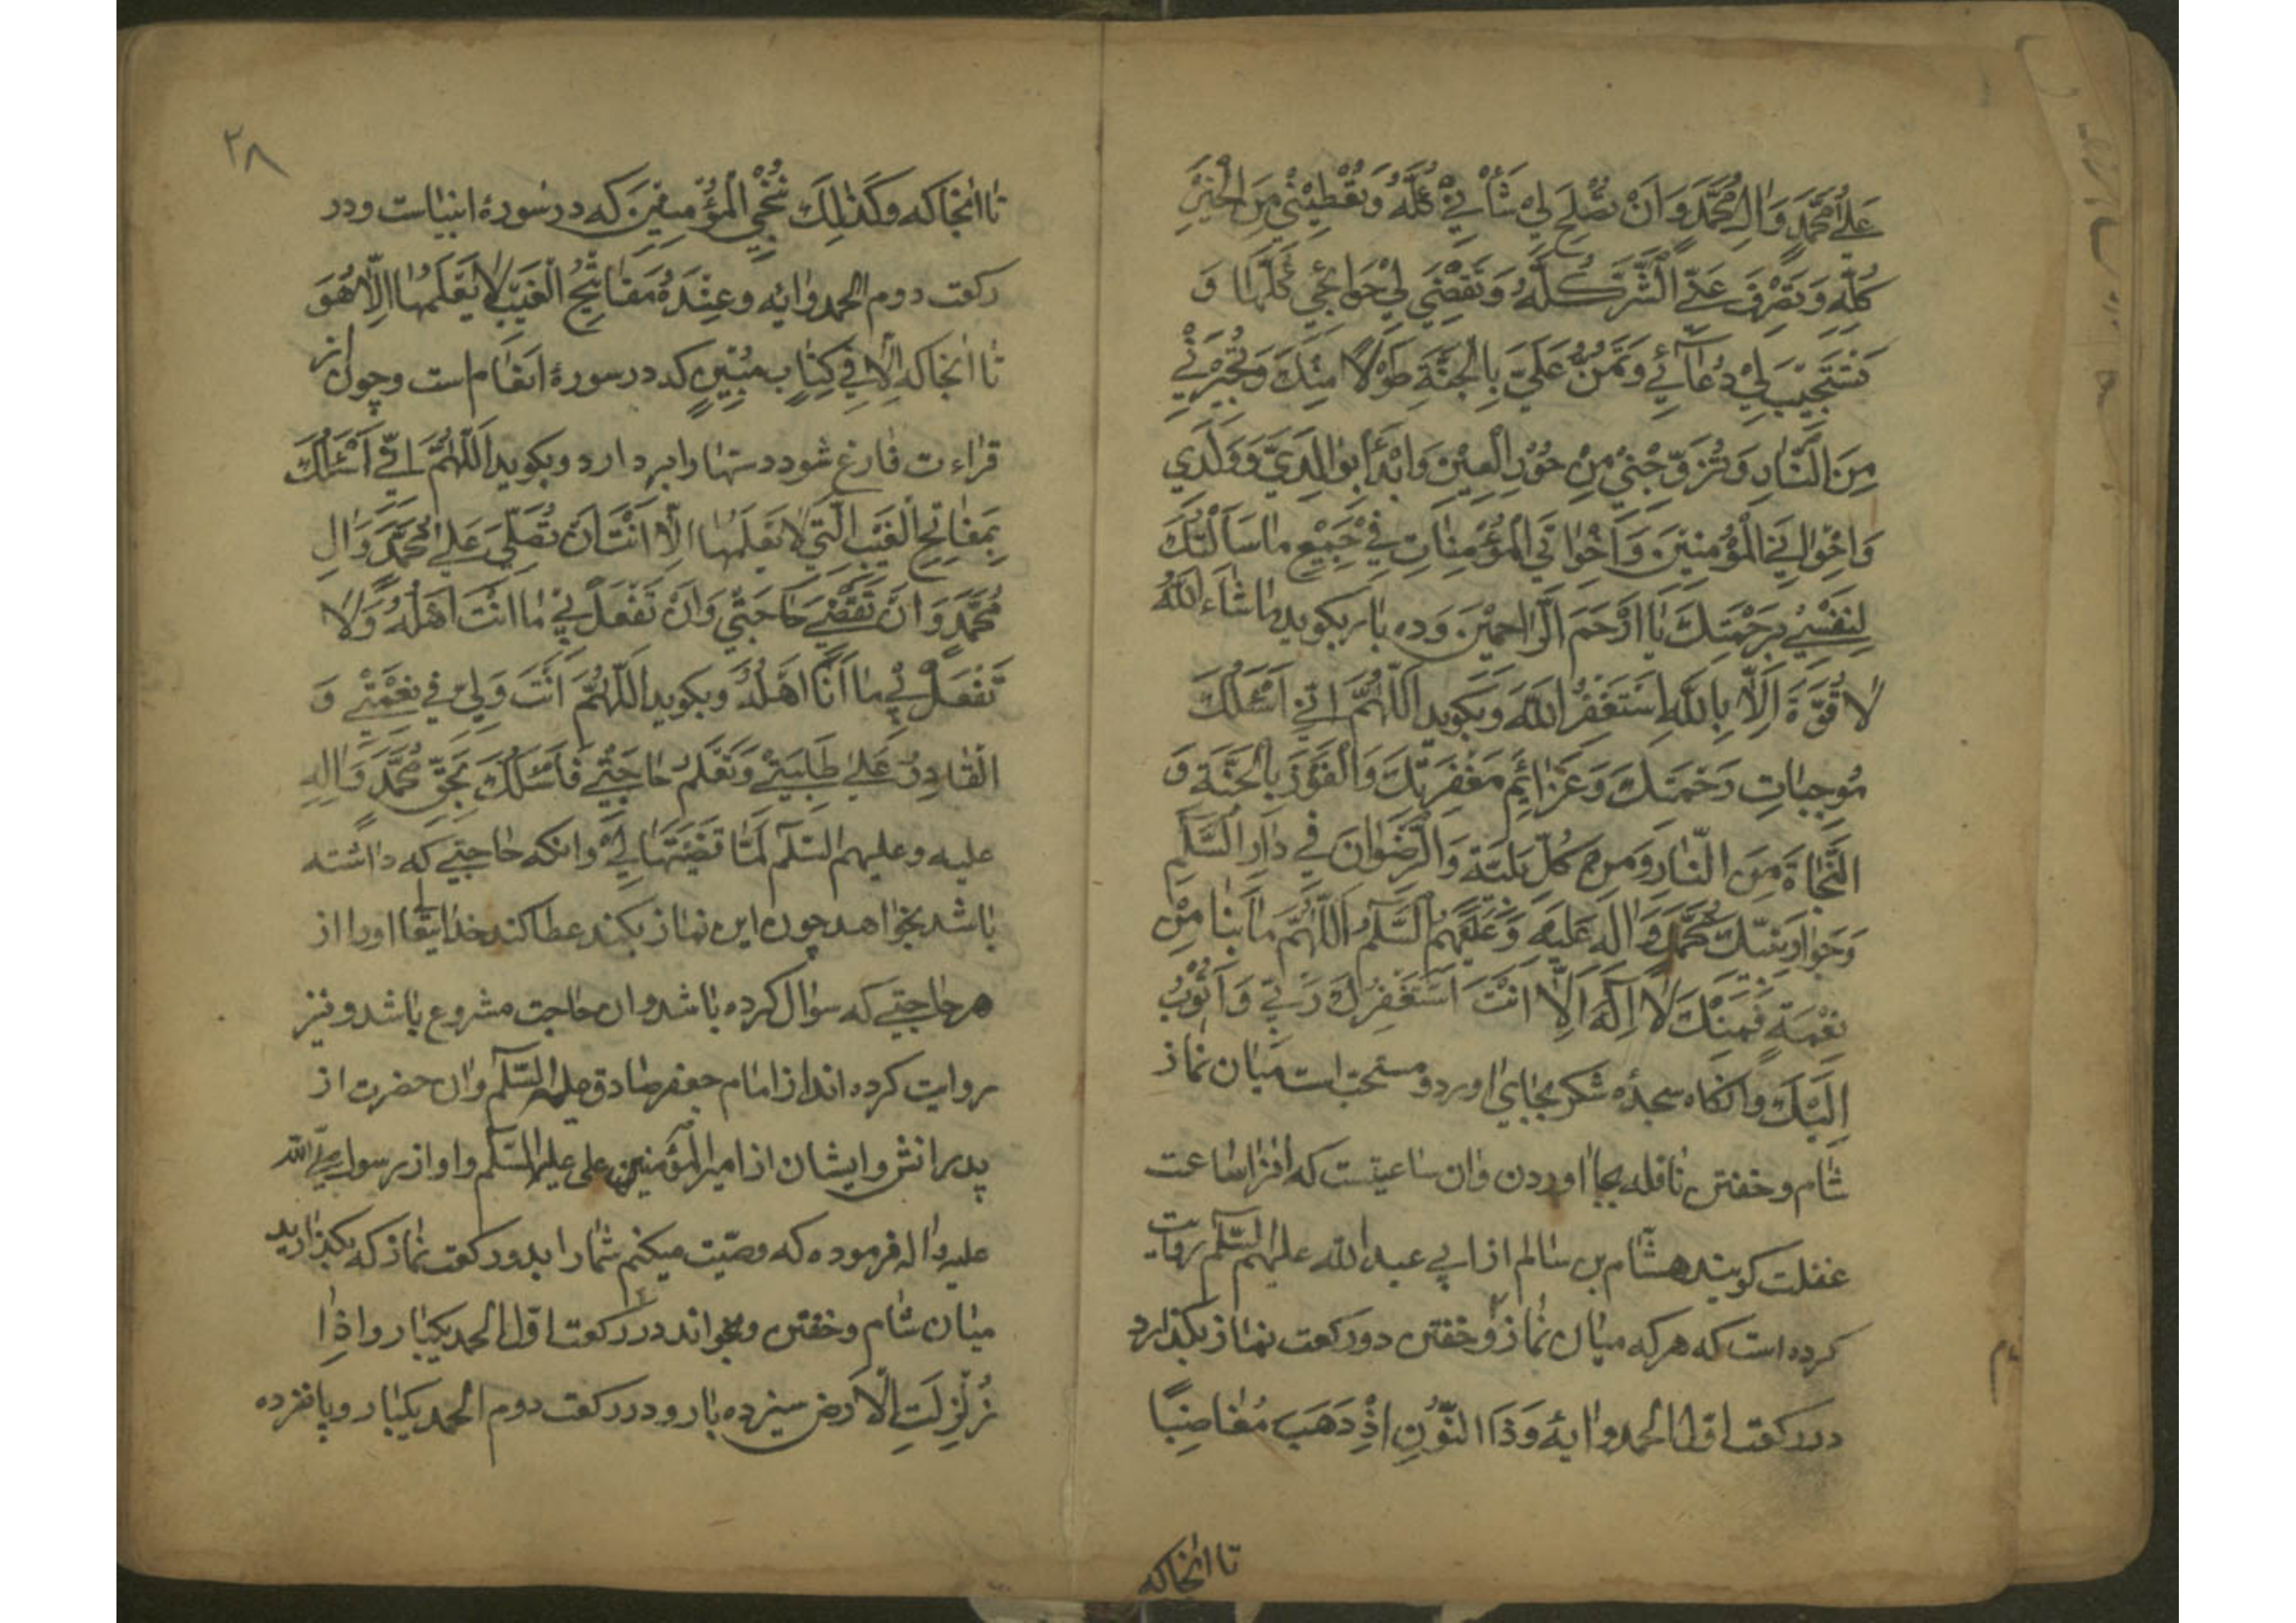 عَلیٰ مُحَمَّدٍ وَاٰلِ مُحَمَّدٍ وَاَنْ تُصْلِحَ لِیْ شَأْنِیْ كُلَّهُ وَتُعْطِیَنِیْ مِنَ الْخَیْرِ
كُلِّهِ وَتَصْرِفَ عَنِّی الشَّرَّ كُلَّهُ وَتَقْضِیَ لِیْ حَوٰائِجِیْ كُلَّهٰا وَ
تَسْتَجِیْبَ لِیْ دُعٰآئِیْ وَتَمُنَّ عَلَیَّ بِالْجَنَّةِ طَوْلًا مِنْكَ وَتُجِیْرَنِیْ
مِنَ النّٰارِ وَتُزَوِّجَنِیْ مِنْ حُوْرِ الْعِیْنِ وَابْدَأْ بِوٰالِدَیَّ وَوَلَدِی
وَاِخْوٰانِیَ الْمُؤْمِنِیْنَ وَاَخَوٰاتِی الْمُؤْمِنٰاتِ فِیْ جَمِیْعِ مٰاسَاَلْتُكَ
لِنَفْسِیْ بِرَحْمَتِكَ یٰا اَرْحَمَ الرّٰاحِمِیْنَ وده بار بكوید مٰاشٰاءَ اللّٰهُ
لٰا قُوَّةَ اِلّٰا بِاللّٰهِ اَسْتَغْفِرُ اللّٰهَ وبكوید اَللّٰهُمَّ اِنِّیْ اَسْئَلُكَ
مُوجِبٰاتِ رَحْمَتِكَ وَعَزٰائِمَ مَغْفِرَتِكَ وَالْفَوْزَ بِالْجَنَّةِ وَ
النَّجٰاةَ مِنَ النّٰارِ وَمِنْ كُلِّ بَلِیَّةٍ وَالرِّضْوٰانَ فِیْ دٰارِ السَّلٰمِ
وَجِوٰارِ نَبِیِّكَ مُحَمَّدٍ وَاٰلِهِ عَلَیْهِ وَعَلَیْهِمُ السَّلٰمُ اَللّٰهُمَّ مٰابِنٰا مِنْ
نِعْمَةٍ فَمِنْكَ لٰا اِلٰهَ اِلّٰا اَنْتَ اَسْتَغْفِرُكَ رَبِّیْ وَاَتُوْبُ
اِلَیْكَ وانكاه سجدهٔ شكر بجای اورد ومستحبّ است میان نماز
شام وخفتن نافله بجا اوردن وان ساعتیست كه انرا ساعت
غفلت كویند هشام بن سالم از ابی عبد اللّٰه علیهم السّلم روایت
كرده است كه هر كه میان نماز وخفتن دوركعت نماز بكذارد
درركعت اوّل الحمد وایهٔ وَذَا النُّوْنِ اِذْ ذَهَبَ مُغٰاضِبًا
تا انجاكه
۲۸
تا انجاكه وَكَذٰلِكَ نُنْجِی الْمُؤْمِنِیْنَ كه در سورهٔ انبیاست ودر
ركعت دوم الحمد وایه وَعِنْدَهُ مَفٰاتِحُ الْغَیْبِ لٰا یَعْلَمُهٰا اِلّٰا هُوَ
تا انجاكه اِلّٰا فِی كِتٰابٍ مُبِیْنٍ كه در سورهٔ انعام است وچون از
قراءت فارغ شود دستها را بر دارد وبكوید اَللّٰهُمَّ اِنِّی اَسْئَلُكَ
بِمَفٰاتِحِ الْغَیْبِ الَّتِیْ لٰا یَعْلَمُهٰا اِلّٰا اَنْتَ اَنْ تُصَلِّیَ عَلیٰ مُحَمَّدٍ وَاٰلِ
مُحَمَّدٍ وَاَنْ تَقْضِیَ حٰاجَتِیْ وَاَنْ تَفْعَلَ بِیْ مٰا اَنْتَ اَهْلُهُ وَلٰا
تَفْعَلْ بِیْ مٰا اَنَا اَهْلُهُ وبكوید اَللّٰهُمَّ اَنْتَ وَلِیّ فِی نِعْمَتِیْ وَ
الْقٰادِرُ عَلیٰ طَلِبَتِیْ وَتَعْلَمُ حٰاجَتِیْ فَاَسْئَلُكَ بِحَقِّ مُحَمَّدٍ وَاٰلِهِ
علیه وعلیهم السّلم لَمّٰا قَضَیْتَهٰا لِیْ وانكه حاجتی كه داشته
باشد بخواهد چون این نماز بكند عطا كند خدایتعا اورا از
هر حاجتی كه سؤال كرده باشد وان حاجت مشروع باشد ونیز
روایت كرده اند از امام جعفر صادق علیه السّلم وان حضرت از
پدرانش وایشان از امیر المؤمنین علی علیه السّلم واو از رسول صلّی اللّٰه
علیه واله فرموده كه وصیّت میكنم شما را بدو ركعت نماز كه بكذارید
میان شام وخفتن وبخواند درركعت اوّل الحمد یكبار واذا
زُلْزِلَتِ الْاَرْض سیزده بار ودرركعت دوم الحمد یكبار وپانزده